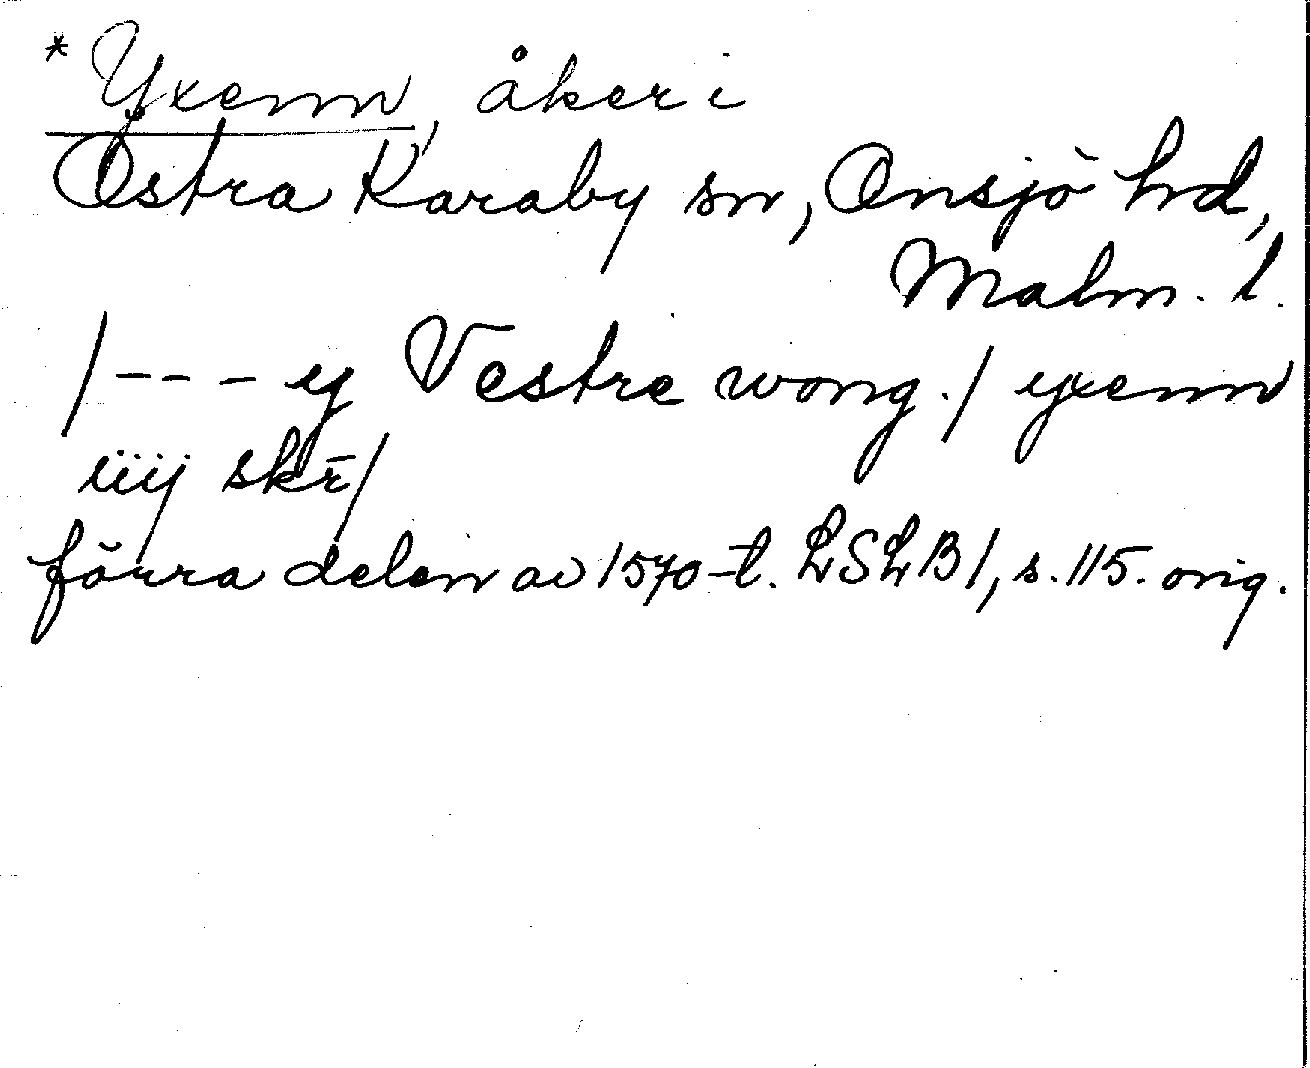 *Yxenn, åker i
Östra Karaby sn, Onsjö hd,
Malm. l.
/--- y Vestre wong./ yxenn
iiij skr̄/
förra delen av 1570-t. LSLB1, s. 115. orig.